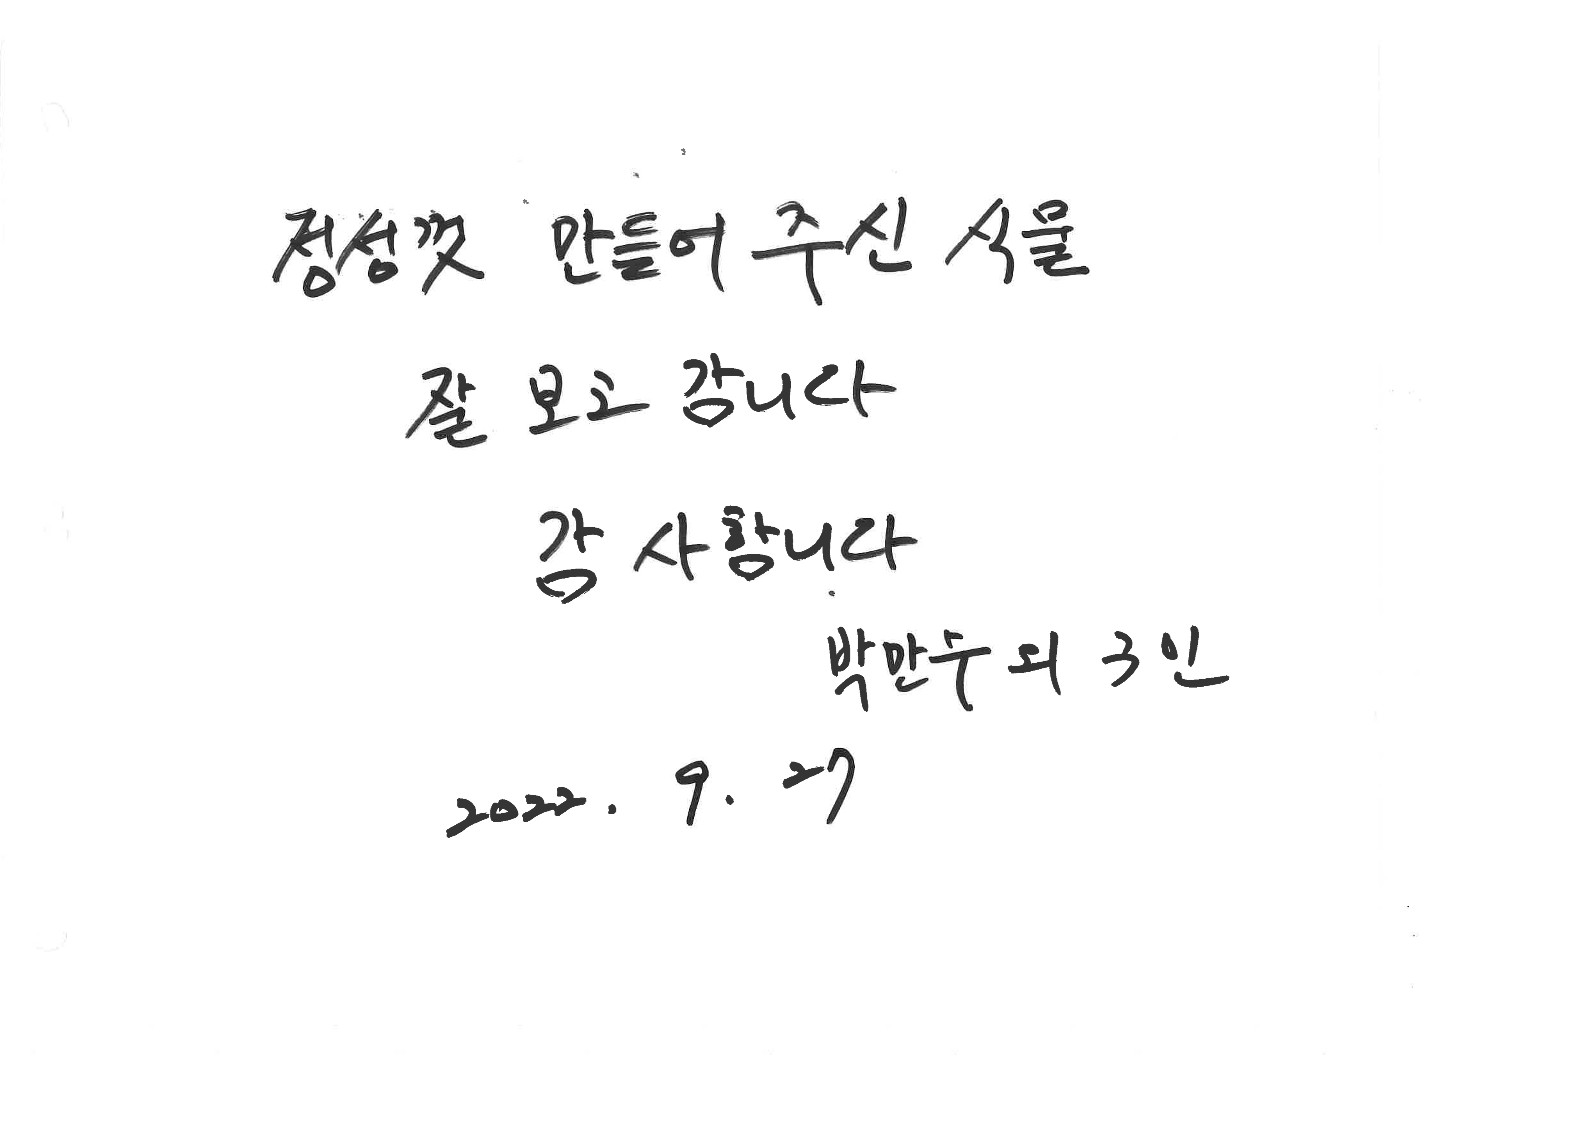 정성껏 만들어 주신 식물
잘 보고 갑니다
감사합니다
박만수 외 3인
2022. 9. 27